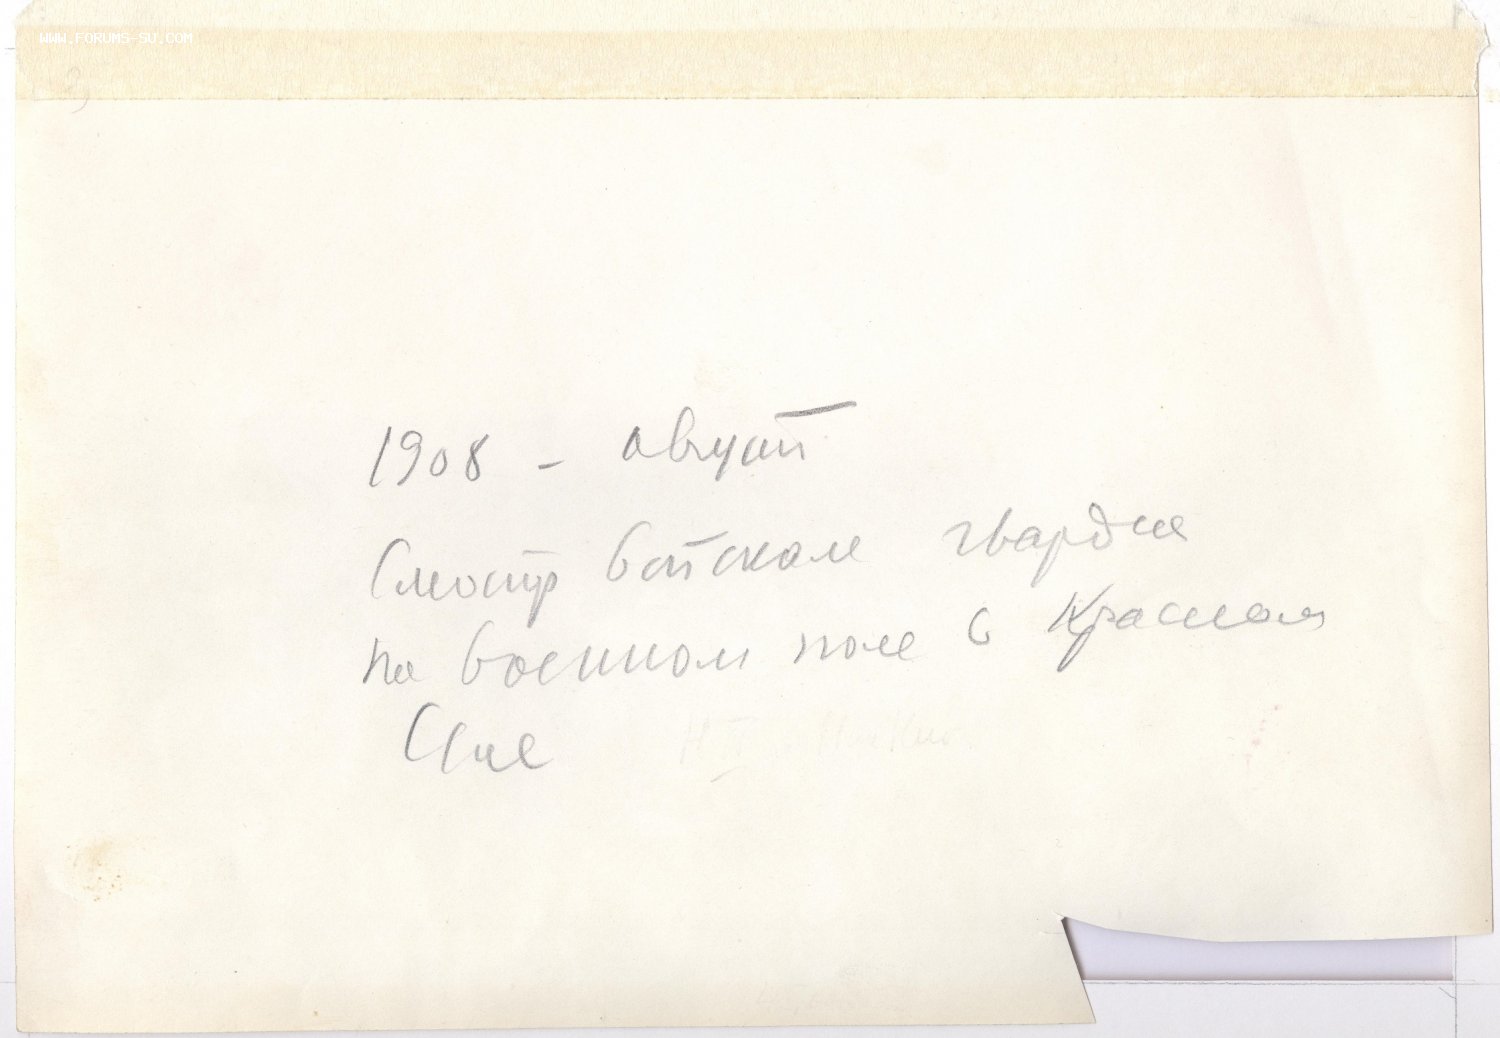 WWW.FORUMS-SU.COM
1908 - август
Смотр войскам гвардии
на военном поле в Красном
Селе